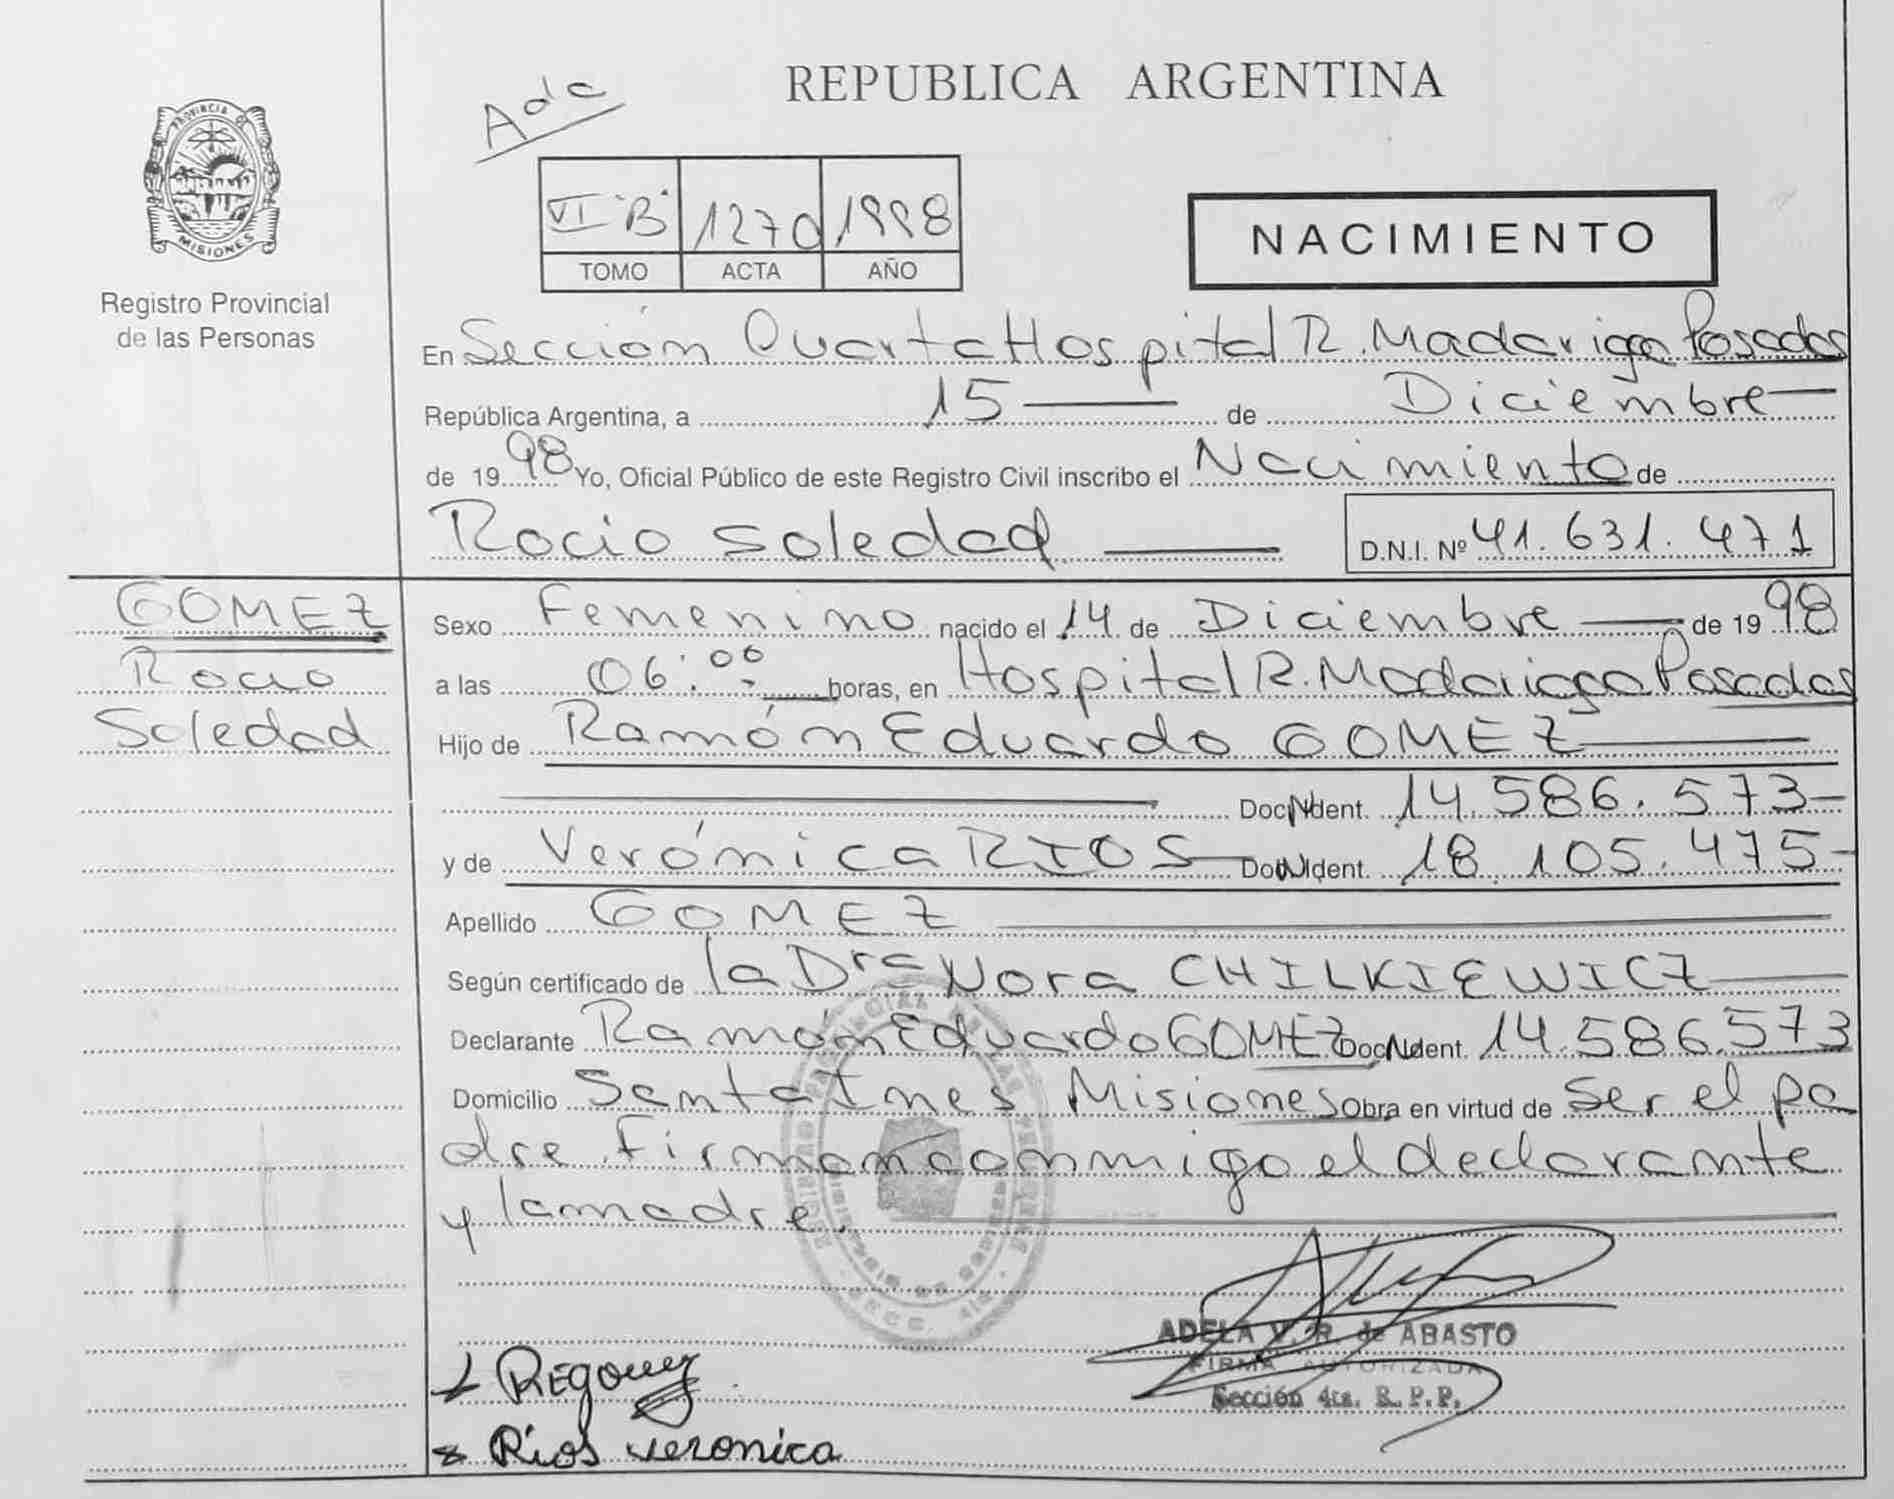 REPUBLICA ARGENTINA
Ada
PROVINCIA DE
MISIONES
Registro Provincial
de las Personas
VI "B" 1270 1998
TOMO ACTA AÑO
NACIMIENTO
En Sección Cuarta Hospital R. Madariaga Posadas
República Argentina, a 15 de Diciembre
de 1998 Yo, Oficial Público de este Registro Civil inscribo el Nacimiento de
Rocio Soledad D.N.I. Nº 41.631.471
GOMEZ
Rocio
Soledad
Sexo Femenino nacido el 14 de Diciembre de 1998
a las 06:00 horas, en Hospital R. Madariaga Posadas
Hijo de Ramón Eduardo GOMEZ
Doc. Ident. 14.586.573
y de Verónica RIOS Doc. Ident. 18.105.475
Apellido GOMEZ
Según certificado de la Dra Nora CHILKIEWICZ
Declarante Ramón Eduardo GOMEZ Doc. Ident. 14.586.573
Domicilio Santa Ines Misiones Obra en virtud de Ser el pa
dre. Firman conmigo el declarante
y la madre.
ADELA V. R. de ABASTO
FIRMA AUTORIZADA
Sección 4ta. R. P. P.
REGomez
Rios veronica